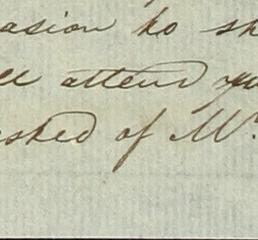 asion to sh
ll attend you
shed of Mr.